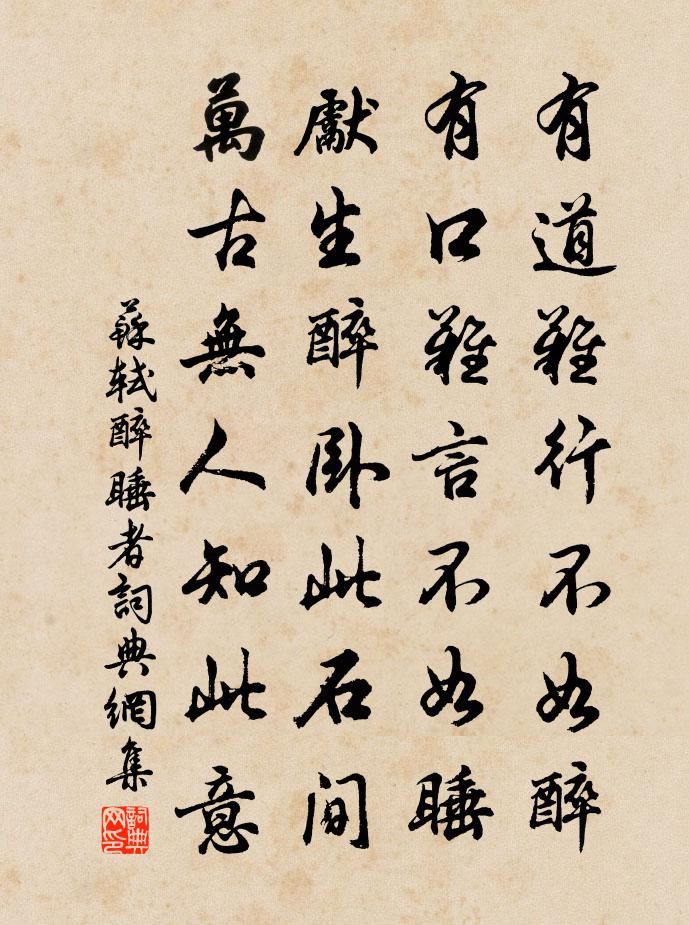 有道難行不如醉
有口難言不如睡
獻生醉卧此石間
萬古無人知此意
蘇軾醉睡者詞典網集
詞典网印